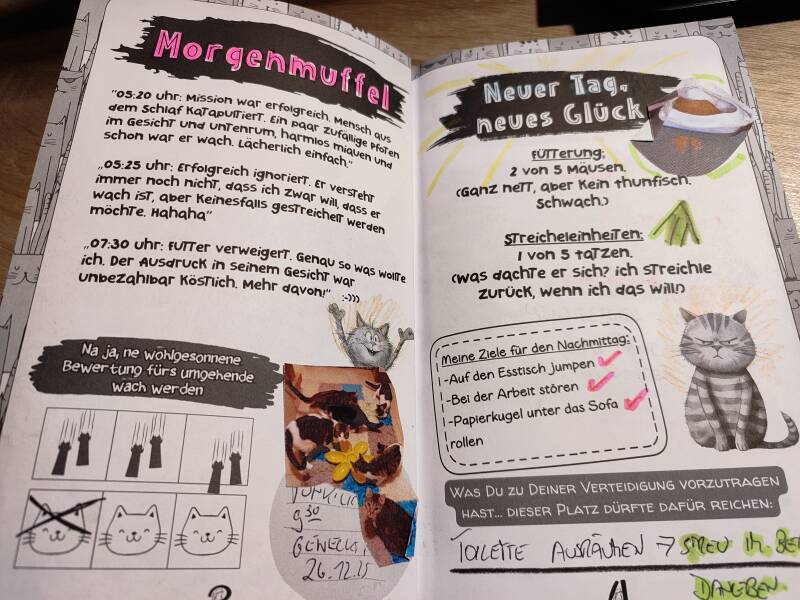 Morgenmuffel
"05:20 uhr: Mission war erfolgreich. Mensch aus
dem Schlaf katapultiert. Ein paar zufällige Pfoten
im Gesicht und untenrum, harmlos miauen und
schon war er wach. Lächerlich einfach."
„05:25 uhr: Erfolgreich ignoriert. Er versteht
immer noch nicht, dass ich zwar will, dass er
wach ist, aber keinesfalls gestreichelt werden
möchte. Hahaha"
„07:30 uhr: Futter verweigert. Genau so was wollte
ich. Der Ausdruck in seinem Gesicht war
unbezahlbar köstlich. Mehr davon!" :-)))
Na ja, ne wohlgesonnene
Bewertung fürs umgehende
wach werden
9:30
26.12.25
Neuer Tag,
neues Glück
Fütterung:
2 von 5 Mäusen.
(Ganz nett, aber kein Thunfisch.
Schwach.)
Streicheleinheiten:
1 von 5 Tatzen.
(Was dachte er sich? Ich streichle
zurück, wenn ich das will!)
Meine Ziele für den Nachmittag:
-Auf den Esstisch jumpen
-Bei der Arbeit stören
-Papierkugel unter das Sofa
rollen
Was Du zu Deiner Verteidigung vorzutragen
hast... dieser Platz dürfte dafür reichen:
Toilette ausräumen → Streu im
daneben